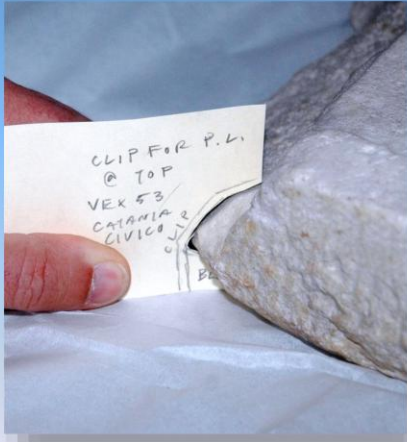 CLIP FOR P.L.
@ TOP
VEX 53
CATANIA
CIVICO
CLIP
BE